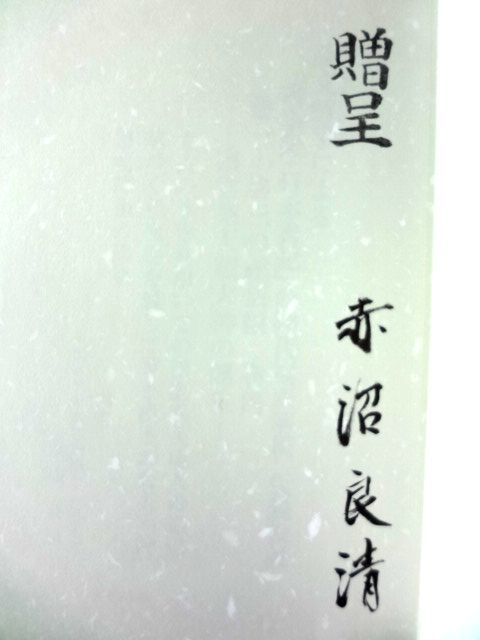 贈呈
赤沼良清